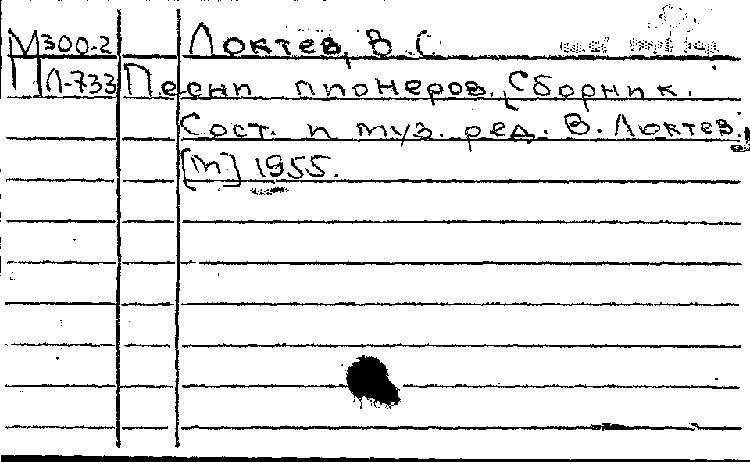 М300-2 Локтев, В. С.
П Л-733 Песни пионеров. Сборник.
Сост. и муз. ред. В. Локтев.
[М] 1955.